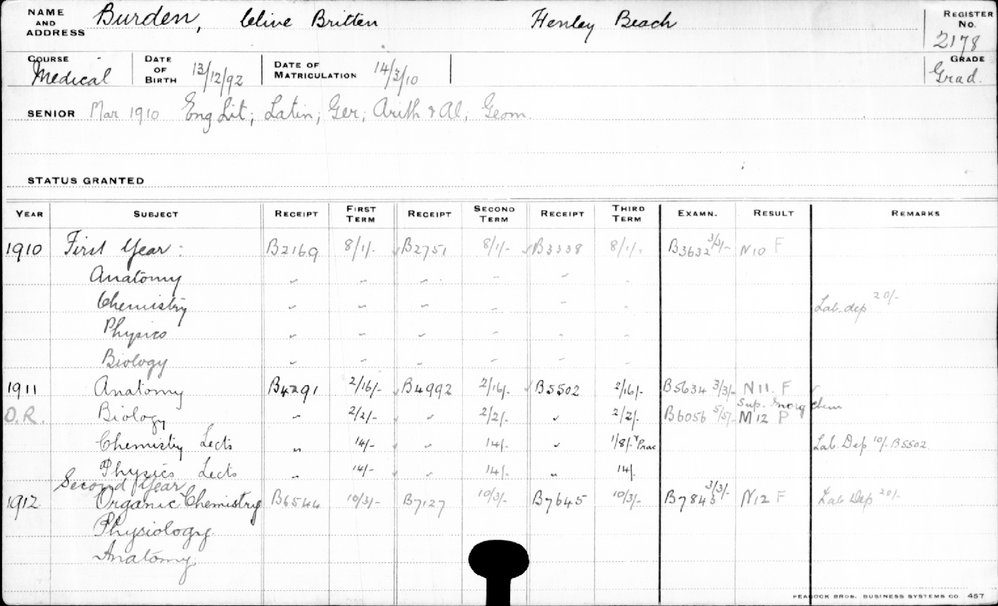 NAME AND ADDRESS Burden, Clive Britten Henley Beach REGISTER No. 2178
COURSE Medical DATE OF BIRTH 13/12/92 DATE OF MATRICULATION 14/3/10 GRADE Grad.
SENIOR Mar 1910 Eng Lit; Latin; Ger; Arith & Al; Geom.
STATUS GRANTED
YEAR SUBJECT RECEIPT FIRST TERM RECEIPT SECOND TERM RECEIPT THIRD TERM EXAMN. RESULT REMARKS
1910 First Year: B2169 8/1/- B2751 8/1/- B3338 8/1/- B3632 3/3/- N10 F
Anatomy " " " " " "
Chemistry " " " " " " Lab. dep 20/-
Physics " " " " " "
Biology " " " " " "
1911 Anatomy B4291 2/16/- B4992 2/16/- B5502 2/16/- B5634 3/3/- N11. F
O.R. Biology " 2/2/- " 2/2/- " 2/2/- B6056 5/5/- Sup. Inorg Chem M12 P
Chemistry Lects " 14/- " 14/- " 1/8/- Prac Lab Dep 10/- B5502
Physics Lects " 14/- " 14/- " 14/-
Second Year
1912 Organic Chemistry B6544 10/3/- B7127 10/3/- B7645 10/3/- B7845 3/3/- N12 F Lab Dep 20/-
Physiology
Anatomy
PEACOCK BROS. BUSINESS SYSTEMS CO. 457